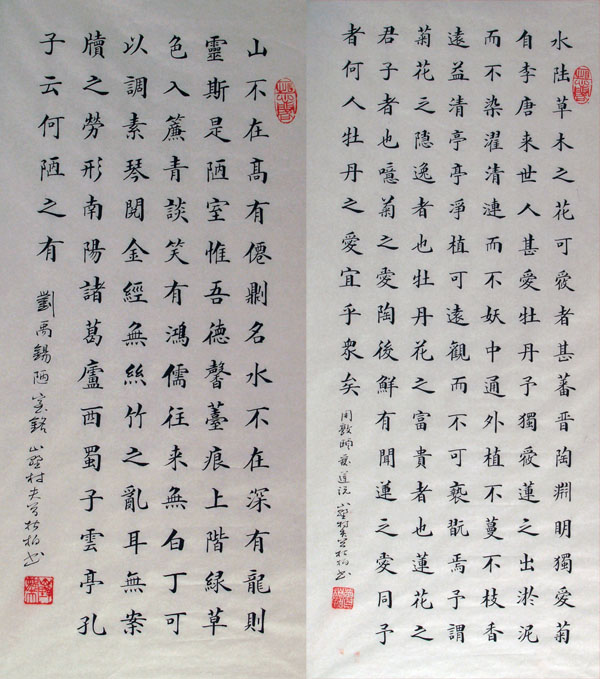 水陆草木之花可愛者甚蕃晋陶渊明獨愛菊
自李唐来世人甚愛牡丹予獨愛蓮之出淤泥
而不染濯清漣而不妖中通外植不蔓不枝香
遠益清亭亭凈植可遠觀而不可褻翫焉予謂
菊花之隐逸者也牡丹花之富貴者也蓮花之
君子者也噫菊之愛陶後鮮有聞蓮之愛同予
者何人牡丹之愛宜乎衆矣
周敦頤愛蓮説 山野村夫松柏書
山不在髙有僊則名水不在深有龍則
靈斯是陋室惟吾德馨薹痕上階緑草
色入簾青談笑有鴻儒往来無白丁可
以調素琴閲金經無絲竹之亂耳無案
牘之勞形南陽諸葛廬西蜀子雲亭孔
子云何陋之有 劉禹錫陋室銘 山野村夫松柏書